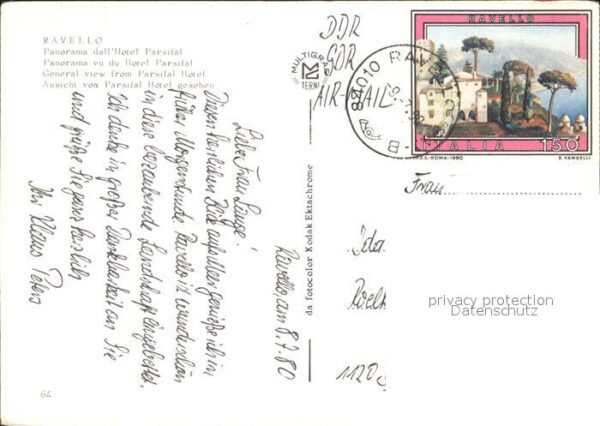 RAVELLO
Panorama dall'Hotel Parsifal
Panorama vu du Hotel Parsifal
General view from Parsifal Hotel
Ansicht von Parsifal Hotel gesehen
64
Ravello, am 8.7.80
Liebe Frau Lange!
Diesen herrlichen Blick auf das Meer genieße ich in
früher Morgenstunde. Ravello ist wunderschön
in diese bezaubernde Landschaft eingebettet.
Ich denke in großer Dankbarkeit an Sie
und grüße Sie ganz herzlich
Ihr Klaus Peters
MULTIGRAF
TERNI
da fotocolor Kodak Ektachrome
DDR
GDR
AIR-MAIL
84010 RAV
RAVELLO
ITALIA 150
I.P.Z.S.-ROMA-1980
E. VANGELLI
Frau
1120
privacy protection
Datenschutz